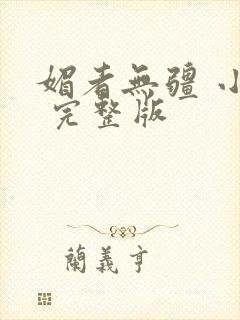 媚者無疆 小
完整版
蘭義亨